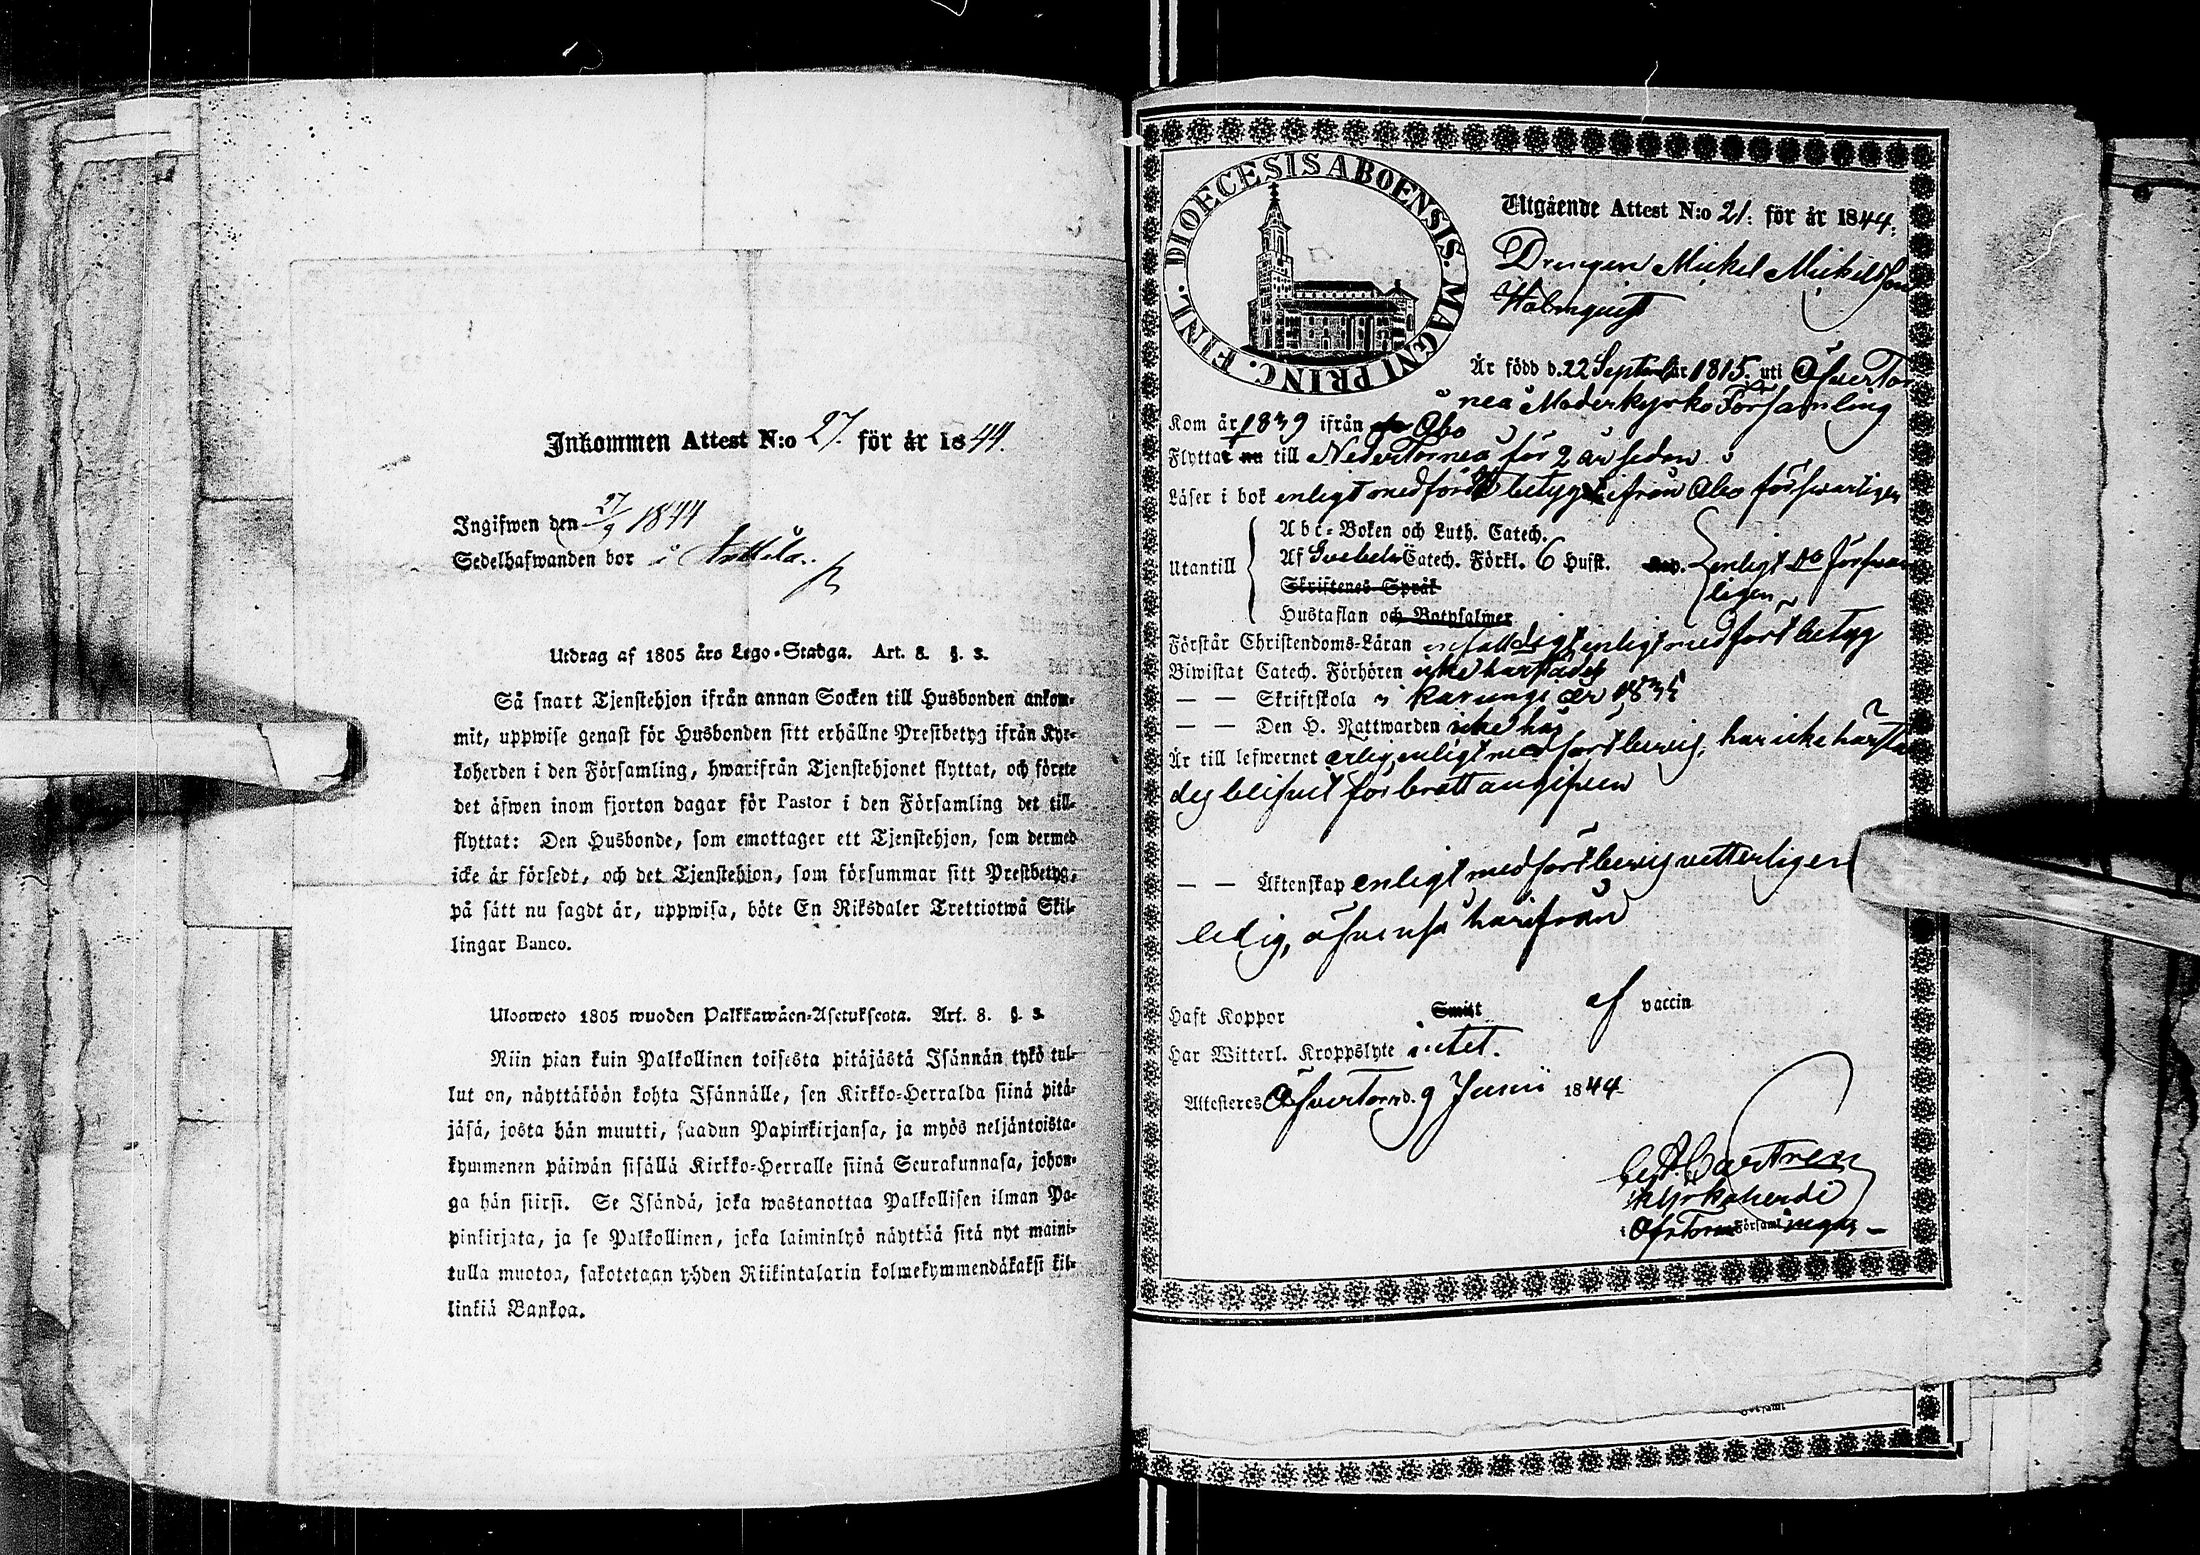 Inkommen Attest N:o 27. för år 1844.
Ingifwen den 27/9 1844
Sedelhafwanden bor i
Utdrag af 1805 års Lego-Stadga. Art. 8. §. 3.
Så snart Tjenstehjon ifrån annan Socken till Husbonden ankom-
mit, uppwise genast för Husbonden sitt erhållne Prestbetyg ifrån Kyr-
koherden i den Församling, hwarifrån Tjenstehjonet flyttat, och förete
det äfwen inom fjorton dagar för Pastor i den Församling det till-
flyttat: Den Husbonde, som emottager ett Tjenstehjon, som dermed
icke är försedt, och det Tjenstehjon, som försummar sitt Prestbetyg,
på sätt nu sagdt är, uppwisa, böte En Riksdaler Trettiotwå Skil-
lingar Banco.
Ulosweto 1805 wuoden Palkkawäen-Asetuksesta. Art. 8. §. 3.
Niin pian kuin Palkollinen toisesta pitäjästä Isännän tykö tul-
lut on, näyttäköön kohta Isännälle, sen Kirkko-Herralda siinä pitä-
jäsä, josta hän muutti, saadun Papinkirjansa, ja myös neljäntoista-
kymmenen päiwän sisällä Kirkko-Herralle siinä Seurakunnasa, johon-
ga hän siirsi. Se Isändä, joka wastanottaa Palkollisen ilman Pa-
pinkirjata, ja se Palkollinen, joka laiminlyö näyttää sitä nyt maini-
tulla muotoa, sakotetaan yhden Riikintalarin kolmekymmendäkaksi kil-
linkiä Bankoa.
DIOECESIS ABOENSIS. MAGNI PRINC. FINL.
Utgående Attest N:o 21. för år 1844.
Drengen Mickel Mickelsson
Holmquist
Är född d. 22 September 1815. uti Öfvertor
neå Moderkyrko Församling
Kom år 1839 ifrån Åbo
Flyttat nu till Nedertorneå för 2 år sedan
Läser i bok enligt medfördt betyg ifrån Åbo försvarligen
Utantill
Abc-Boken och Luth. Catech.
Af Svebelii Catech. Förkl. 6 Hufst. enligt do försvar
ligen
Skriftenes Språk
Hustaflan och Botpsalmer
Förstår Christendoms-Läran enfaldigt enligt medfört betyg
Biwistat Catech. Förhören icke härstädes
— — Skriftskola i Karungi år 1835
— — Den H. Nattwarden icke här
Är till lefwernet ärlig enligt medfört bevis, har icke härstä
des blifvit för brott angifven
— — Äktenskap enligt medfört bevis vetterligen
ledig, äfvenså härifrån
Haft Koppor Smitt af vaccin
Har Witterl. Kroppslyte intet.
Attesteres Öfvertorneå d. 9 Junii 1844
Castren
Kyrkoherde
i Öfvtorneå Församlingar